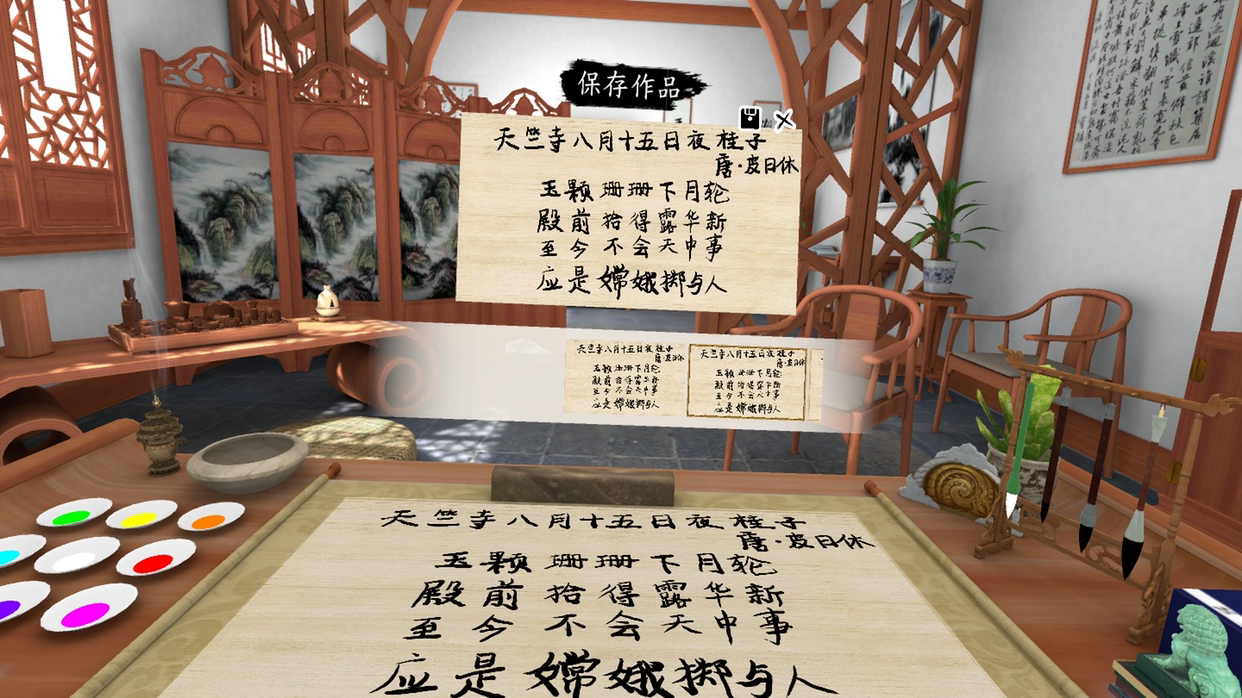 保存作品
天竺寺八月十五日夜桂子
唐·皮日休
玉颗珊珊下月轮
殿前拾得露华新
至今不会天中事
应是嫦娥掷与人
天竺寺八月十五日夜桂子
唐·皮日休
玉颗珊珊下月轮
殿前拾得露华新
至今不会天中事
应是嫦娥掷与人
天竺寺八月十五日夜桂子
唐·皮日休
玉颗珊珊下月轮
殿前拾得露华新
至今不会天中事
应是嫦娥掷与人
天竺寺八月十五日夜桂子
唐·皮日休
玉颗珊珊下月轮
殿前拾得露华新
至今不会天中事
应是嫦娥掷与人